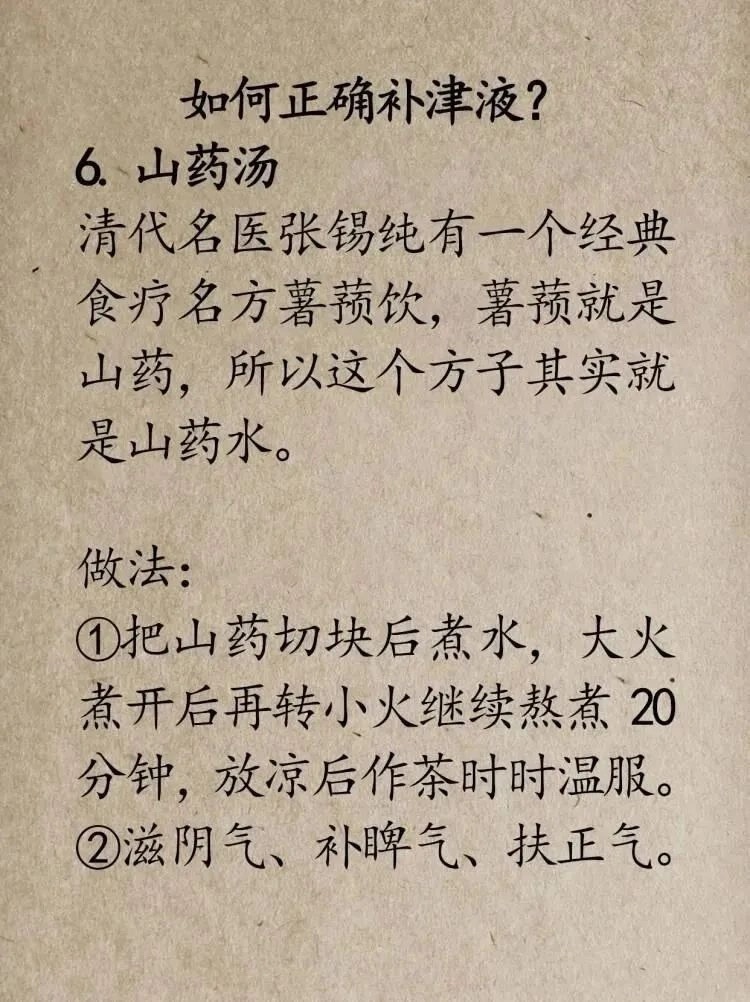 如何正确补津液?
6. 山药汤
清代名医张锡纯有一个经典
食疗名方薯蓣饮，薯蓣就是
山药，所以这个方子其实就
是山药水。
做法：
①把山药切块后煮水，大火
煮开后再转小火继续熬煮 20
分钟，放凉后作茶时时温服。
②滋阴气、补睥气、扶正气。